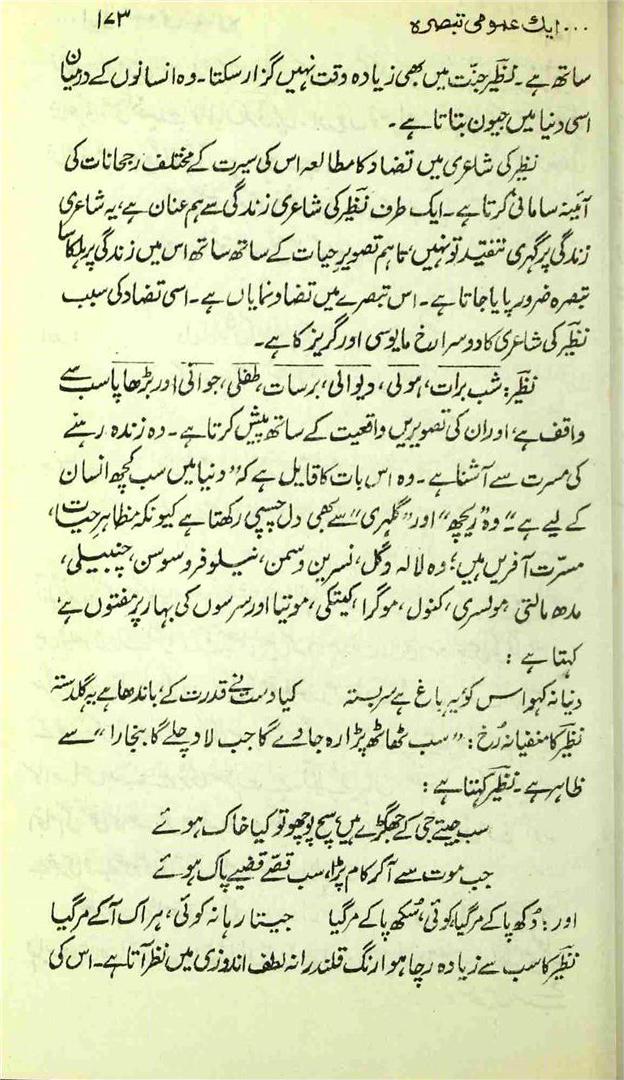 ... ایک عمومی تبصرہ ۱۷۳
ساتھ ہے۔ نظیر جنّت میں بھی زیادہ وقت نہیں گزار سکتا۔ وہ انسانوں کے درمیان
اسی دنیا میں جیون بتاتا ہے۔
نظیر کی شاعری میں تضاد کا مطالعہ اس کی سیرت کے مختلف رجحانات کی
آئینہ سامانی کرتا ہے۔ ایک طرف نظیر کی شاعری زندگی سے ہم عنان ہے، یہ شاعری
زندگی پر گہری تنقید تو نہیں، تاہم تصویرِ حیات کے ساتھ ساتھ اس میں زندگی پر ہلکا سا
تبصرہ ضرور پایا جاتا ہے۔ اس تبصرے میں تضاد نمایاں ہے۔ اسی تضاد کی سبب
نظیر کی شاعری کا دوسرا رخ مایوسی اور گریز کا ہے۔
نظیر: شب برات، ہولی، دیوالی، برسات، طفلی، جوانی اور بڑھاپا سب سے
واقف ہے، اور ان کی تصویریں واقعیت کے ساتھ پیش کرتا ہے۔ وہ زندہ رہنے
کی مسرت سے آشنا ہے۔ وہ اس بات کا قایل ہے کہ "دنیا میں سب کچھ انسان
کے لیے ہے"۔ وہ "ریچھ" اور "گلہری" سے بھی دل چسپی رکھتا ہے کیونکہ مظاہرِ حیات،
مسرّت آفریں ہیں؛ وہ لالہ و گل، نسرین و سمن، نیلوفر و سوسن، چنبیلی،
مدھ مالتی، مولسری، کنول، موگرا، کیتکی، موتیا اور سرسوں کی بہار پر مفتوں ہے،
کہتا ہے :
دنیا نہ کہو اس کو یہ باغ ہے سربستہ کیا دست نے قدرت کے، باندھا ہے یہ گلدستہ
نظیر کا منفیانہ رُخ : "سب ٹھاٹھ پڑا رہ جاوے گا جب لاد چلے گا بنجارا" سے
ظاہر ہے۔ نظیر کہتا ہے :
سب جیتے جی کے جھگڑے ہیں، سچ پوچھو تو کیا خاک ہوئے
جب موت سے آ کر کام پڑا، سب قصّے قضیے پاک ہوئے
اور : دُکھ پا کے مر گیا کوئی، سُکھ پا کے مر گیا جیتا رہا نہ کوئی، ہر اک آ کے مر گیا
نظیر کا سب سے زیادہ رچا ہوا رنگ قلندرانہ لطف اندوزی میں نظر آتا ہے۔ اس کی